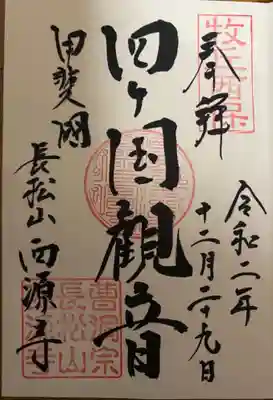 奉拝
令和二年
十二月二十九日
四ヶ国観音
甲斐國
長松山 西源寺
曹洞宗
長松山